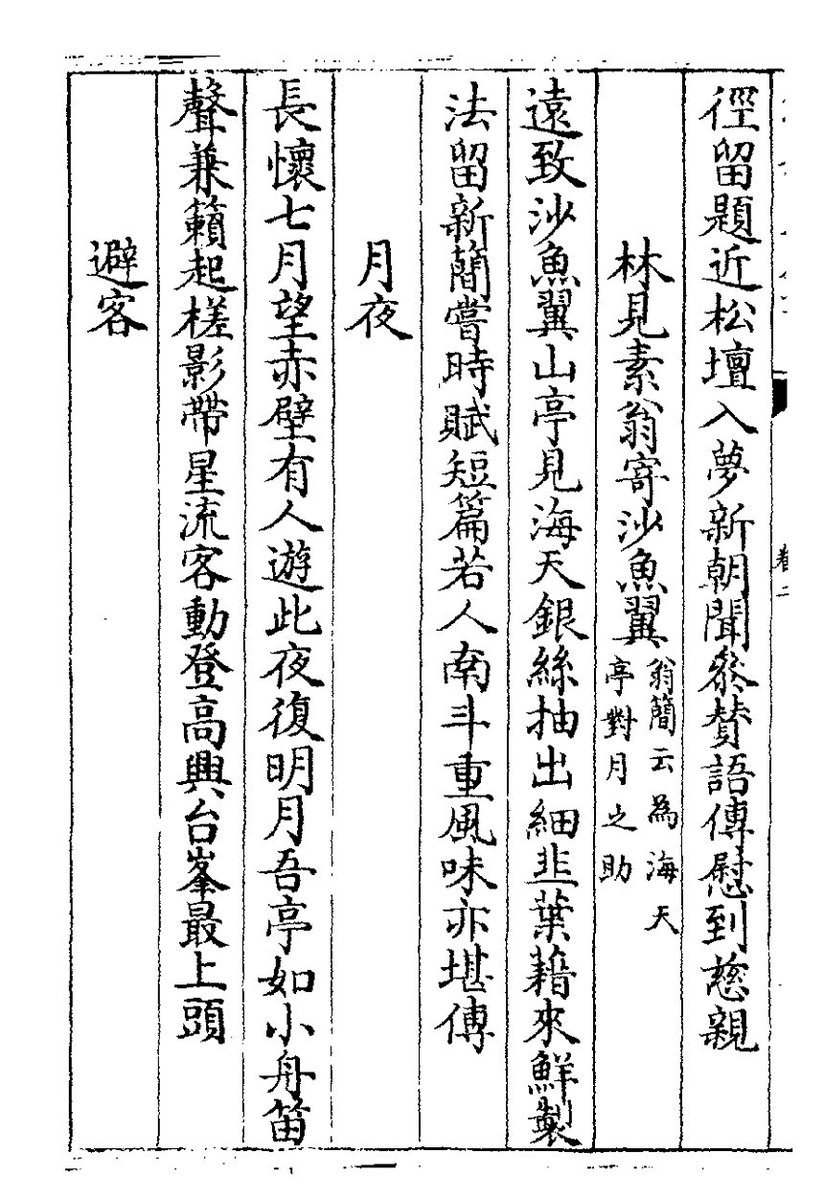 徑留題近松壇入夢新朝聞叅贊語傳慰到慈親
林見素翁寄沙魚翼翁簡云為海天亭對月之助
遠致沙魚翼山亭見海天銀絲抽出細韭葉藉來鮮製
法留新簡嘗時賦短篇若人南斗重風味亦堪傳
月夜
長懷七月望赤壁有人遊此夜復明月吾亭如小舟笛
聲兼籟起槎影帶星流客動登高興台峯最上頭
避客